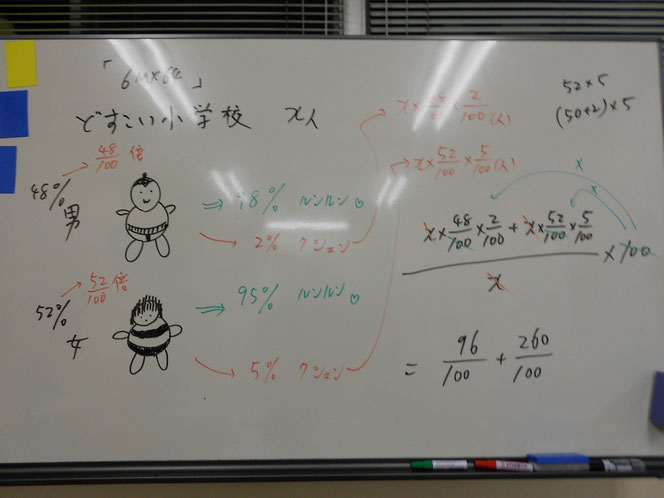 どすこい小学校 x人
48/100 倍
48% 男
⇒ 98% ルンルン♡
→ 2% クシュン
52/100 倍
52% 女
⇒ 95% ルンルン♡
→ 5% クシュン
x×48/100×2/100(人)
x×52/100×5/100(人)
52×5
(50+2)×5
x x
(x×48/100×2/100+x×52/100×5/100)/x ×100
= 96/100 + 260/100